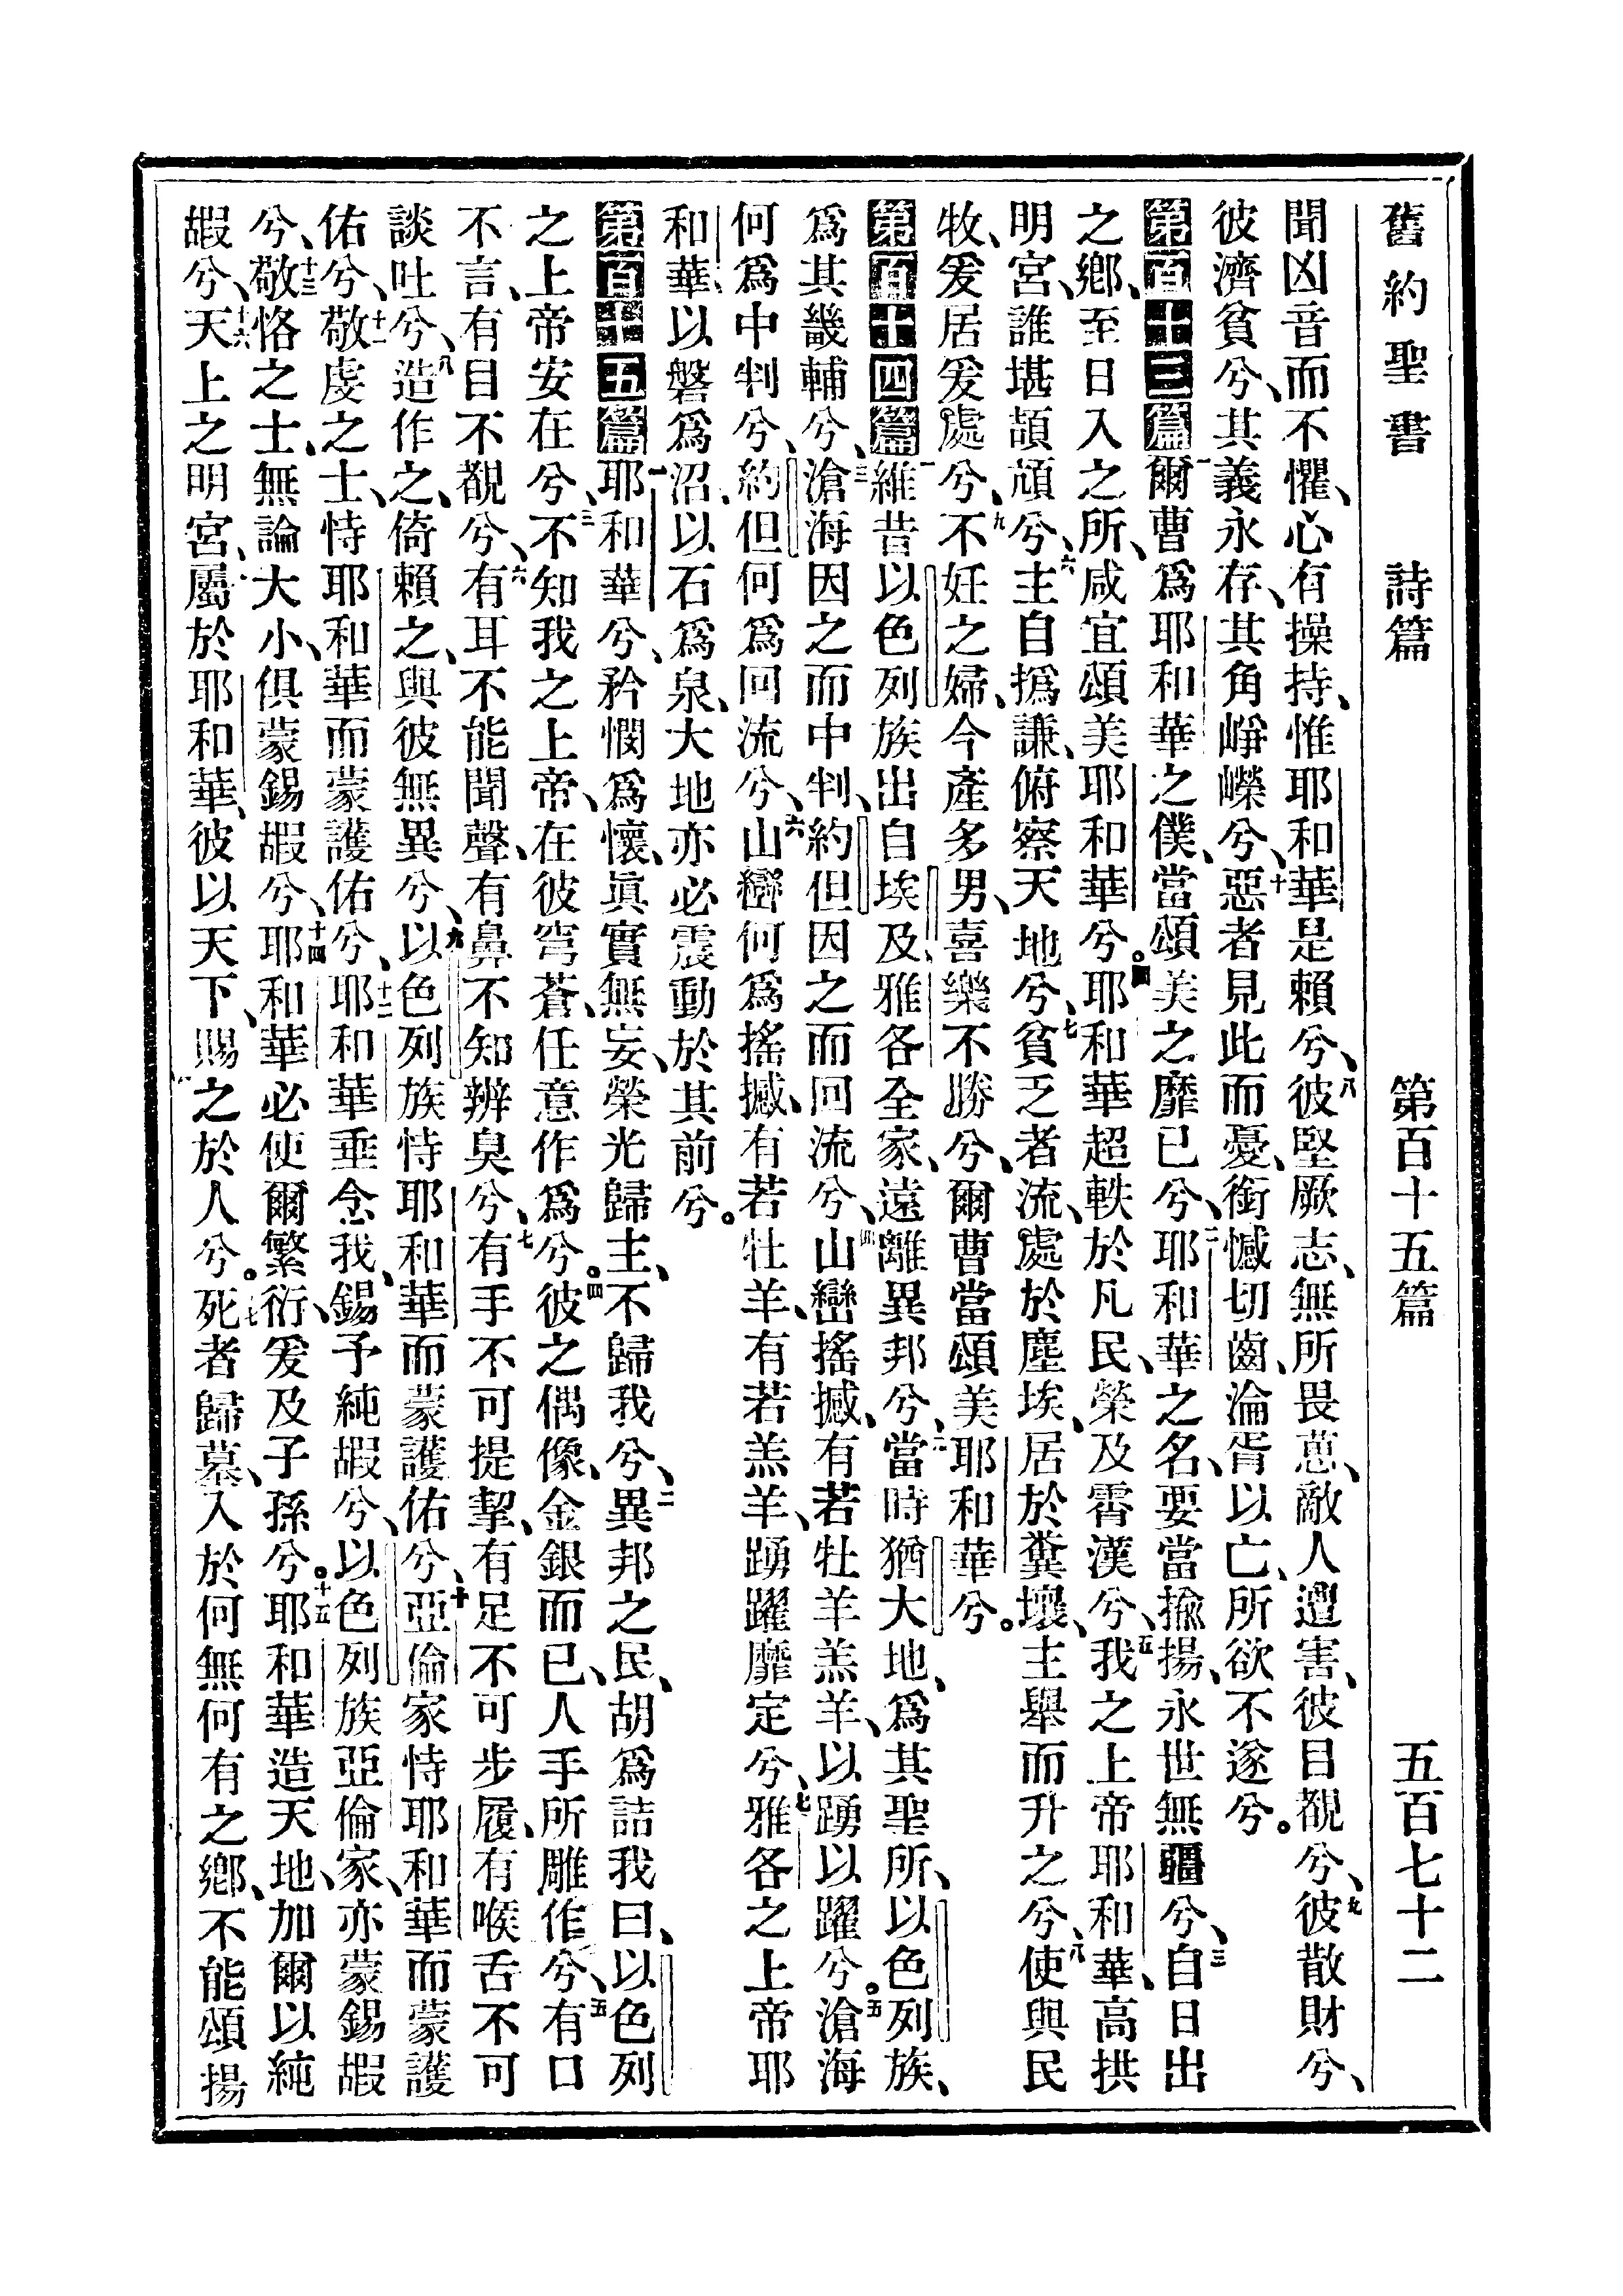 舊約聖書 詩篇 第百十五篇 五百七十二
聞凶音而不懼、心有操持、惟耶和華是賴兮、八彼堅厥志、無所畏葸、敵人遭害、彼目覩兮、九彼散財兮、
彼濟貧兮、其義永存、其角崢嶸兮、十惡者見此而憂、銜憾切齒、淪胥以亡、所欲不遂兮。
第百十三篇一爾曹爲耶和華之僕、當頌美之靡已兮、二耶和華之名、要當揄揚、永世無疆兮、三自日出
之鄉、至日入之所、咸宜頌美耶和華兮。四耶和華超軼於凡民、榮及霄漢兮、五我之上帝耶和華、高拱
明宮、誰堪頡頏兮、六主自撝謙、俯察天地兮、七貧乏者流、處於塵埃、居於糞壤、主舉而升之兮、八使與民
牧、爰居爰處兮、九不妊之婦、今產多男、喜樂不勝兮、爾曹當頌美耶和華兮。
第百十四篇一維昔以色列族出自埃及、雅各全家、遠離異邦兮、二當時猶大地、爲其聖所、以色列族、
爲其畿輔兮、三滄海因之而中判、約但因之而回流兮、四山巒搖撼、有若牡羊羔羊、以踴以躍兮。五滄海
何爲中判兮、約但何爲回流兮、六山巒何爲搖撼、有若牡羊、有若羔羊、踴躍靡定兮、七雅各之上帝耶
和華、以磐爲沼、以石爲泉、大地亦必震動於其前兮。
第百十五篇一耶和華兮、矜憫爲懷、眞實無妄、榮光歸主、不歸我兮、二異邦之民、胡爲詰我曰、以色列
之上帝安在兮、三不知我之上帝、在彼穹蒼、任意作爲兮。四彼之偶像、金銀而已、人手所雕作兮、五有口
不言、有目不覩兮、六有耳不能聞聲、有鼻不知辨臭兮、七有手不可提挈、有足不可步履、有喉舌不可
談吐兮、八造作之、倚賴之、與彼無異兮、九以色列族恃耶和華而蒙護佑兮、十亞倫家恃耶和華而蒙護
佑兮、十一敬虔之士、恃耶和華而蒙護佑兮、十二耶和華垂念我、錫予純嘏兮、以色列族亞倫家、亦蒙錫嘏
兮、十三敬恪之士、無論大小、俱蒙錫嘏兮、十四耶和華必使爾繁衍、爰及子孫兮。十五耶和華造天地、加爾以純
嘏兮、十六天上之明宮、屬於耶和華、彼以天下、賜之於人兮。十七死者歸墓、入於何無何有之鄉、不能頌揚